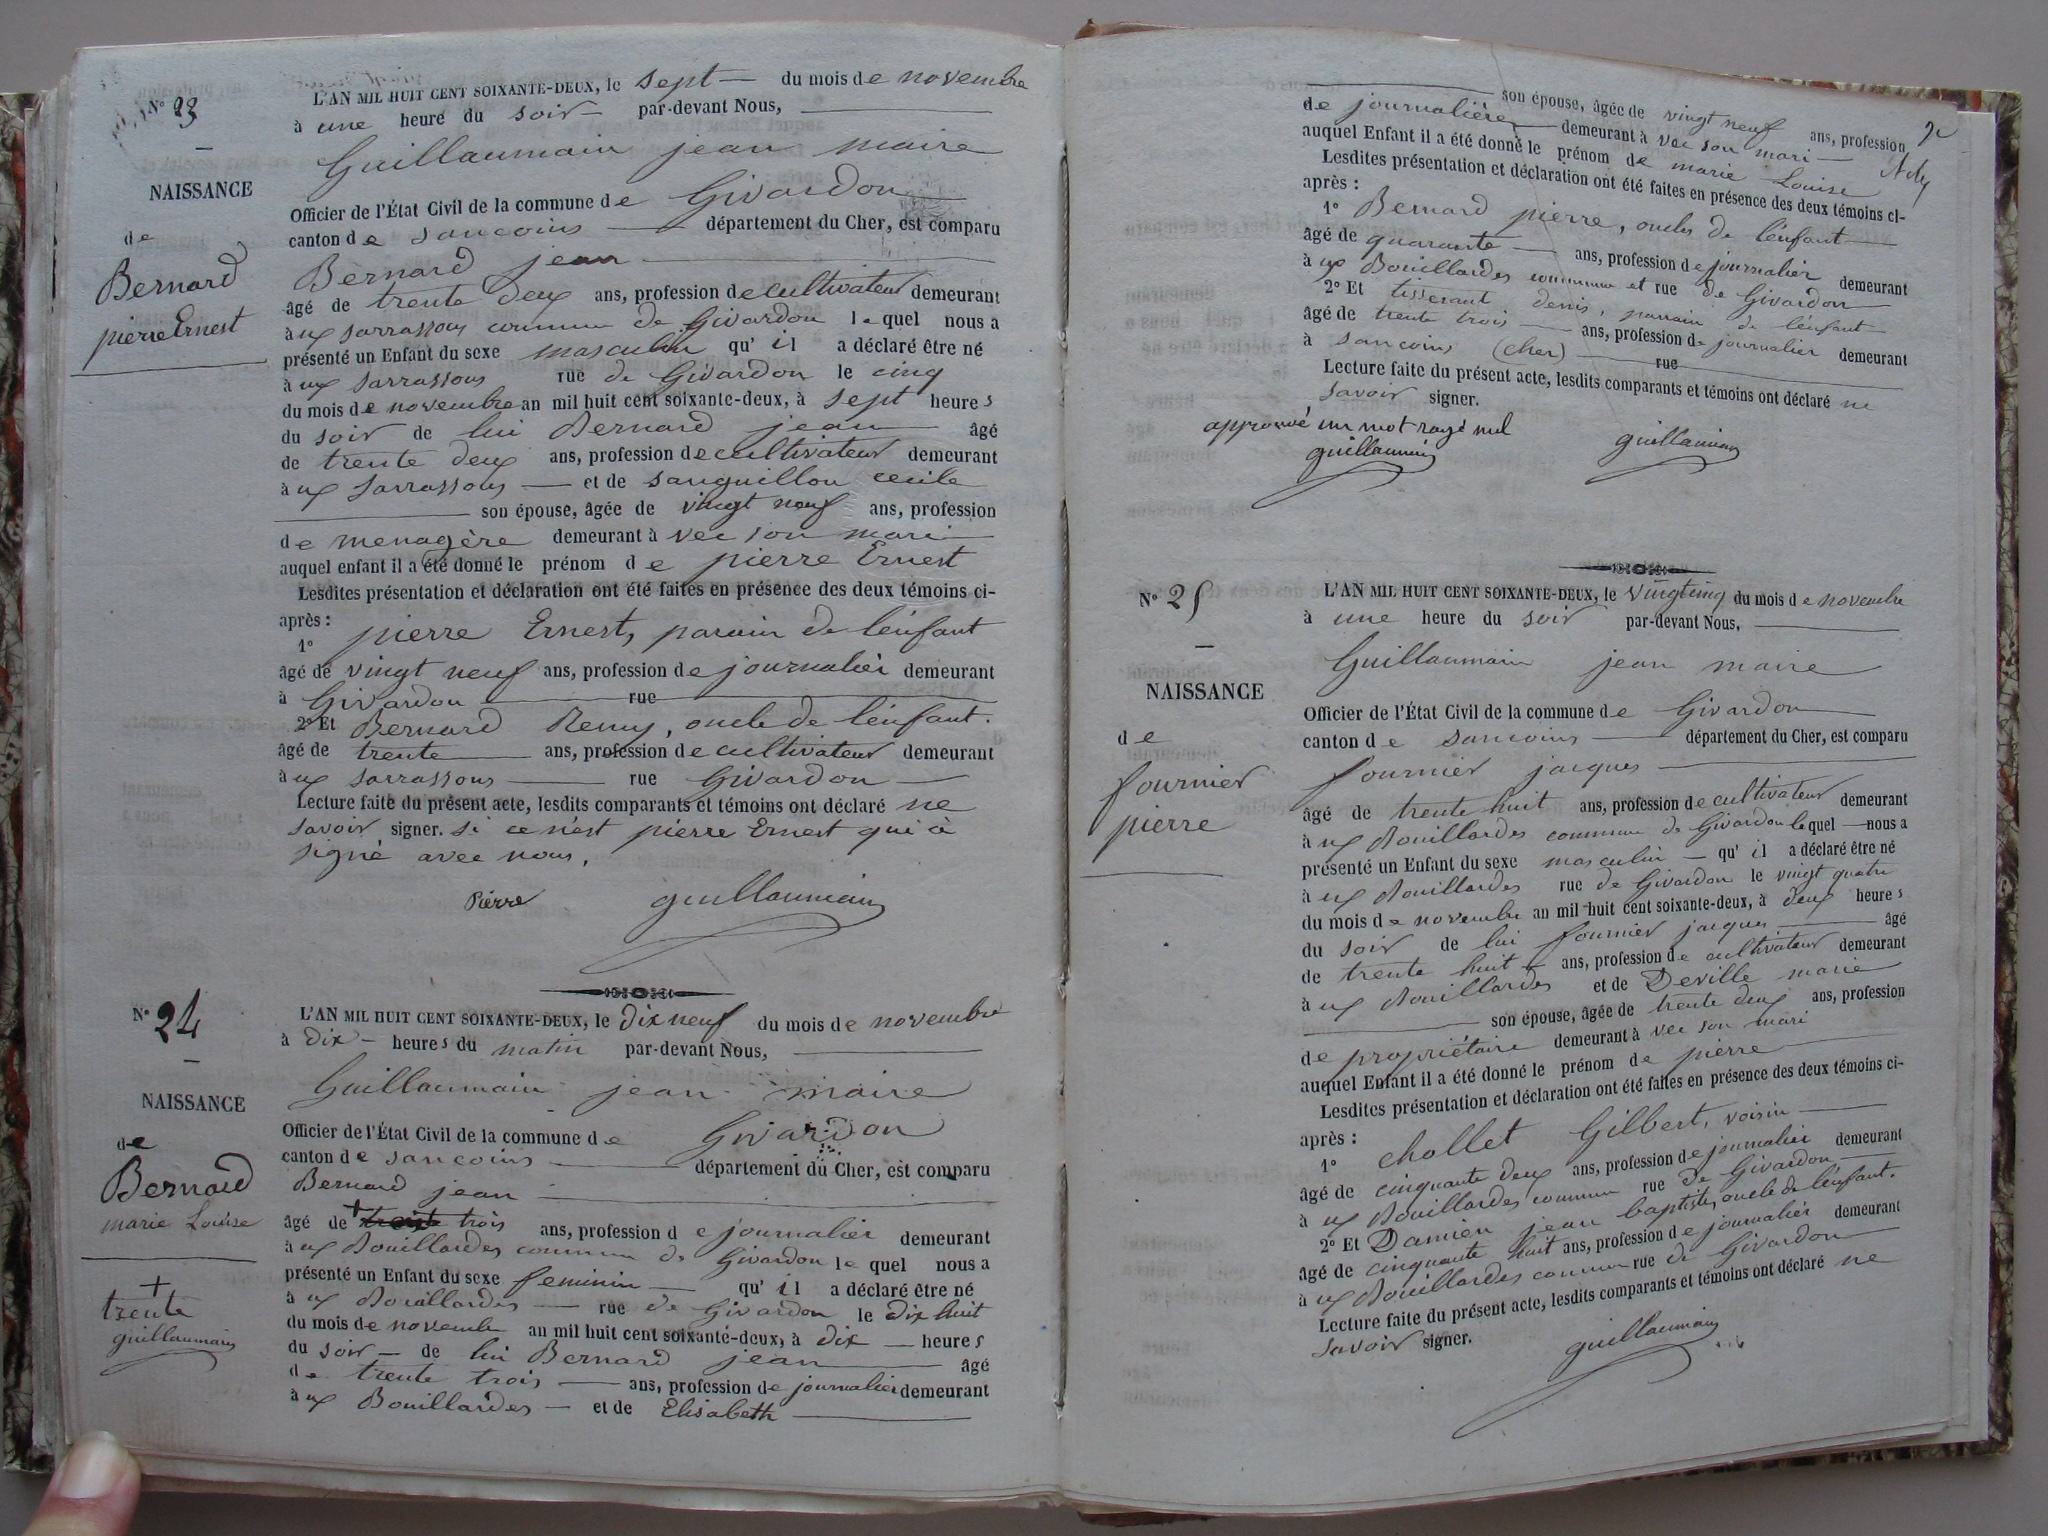 N° 23
—
NAISSANCE
de
Bernard
pierre Ernest
L'AN MIL HUIT CENT SOIXANTE-DEUX, le sept du mois de novembre
à une heure du soir par-devant Nous,
Guillaumain jean maire
Officier de l'État Civil de la commune de Givardon
canton de Sancoins département du Cher, est comparu
Bernard jean
âgé de trente deux ans, profession de cultivateur demeurant
à ux Sarrassous commune de Givardon le quel nous a
présenté un Enfant du sexe masculin qu'il a déclaré être né
à ux Sarrassous rue de Givardon le cinq
du mois de novembre an mil huit cent soixante-deux, à sept heures
du soir de lui Bernard jean âgé
de trente deux ans, profession de cultivateur demeurant
à ux Sarrassous et de Sanguillon cecile
son épouse, âgée de vingt neuf ans, profession
de menagère demeurant à vec son mari
auquel enfant il a été donné le prénom de pierre Ernest
Lesdites présentation et déclaration ont été faites en présence des deux témoins ci-
après :
1° pierre Ernest, parain de lénfant
âgé de vingt neuf ans, profession de journaliér demeurant
à Givardon rue
2° Et Bernard Remy, oncle de lénfant.
âgé de trente ans, profession de cultivateur demeurant
à ux Sarrassous rue Givardon
Lecture faite du présent acte, lesdits comparants et témoins ont déclaré ne
savoir signer. si ce n'est pierre Ernest qui à
signé avec nous.
Pierre guillaumain
N° 24
—
NAISSANCE
de
Bernard
marie Louise
+
trente
guillaumain
L'AN MIL HUIT CENT SOIXANTE-DEUX, le dix neuf du mois de novembre
à dix heures du matin par-devant Nous,
Guillaumain jean maire
Officier de l'État Civil de la commune de Givardon
canton de Sancoins département du Cher, est comparu
Bernard jean
âgé de + trois ans, profession de journaliér demeurant
à ux Bouillardes commune de Givardon le quel nous a
présenté un Enfant du sexe feminin qu'il a déclaré être né
à ux Bouillardes rue de Givardon le dix huit
du mois de novembre an mil huit cent soixante-deux, à dix heures
du soir de lui Bernard jean âgé
de trente trois ans, profession de journaliér demeurant
à ux Bouillardes et de Elisabeth
son épouse, âgée de vingt neuf ans, profession
de journalière demeurant à vec son mari
auquel Enfant il a été donné le prénom de marie Louise
Lesdites présentation et déclaration ont été faites en présence des deux témoins ci-
après :
1° Bernard pierre, oncle de lénfant
âgé de quarante ans, profession de journaliér demeurant
à ux Bouillardes commune et rue de Givardon
2° Et tisserant denis, parrain de lénfant
âgé de trente trois ans, profession de journalier demeurant
à Sancoins (cher) rue
Lecture faite du présent acte, lesdits comparants et témoins ont déclaré ne
savoir signer.
approuvé un mot rayé nul
guillaumain guillaumain
N° 25
—
NAISSANCE
de
fournier
pierre
L'AN MIL HUIT CENT SOIXANTE-DEUX, le vingtcinq du mois de novembre
à une heure du soir par-devant Nous,
Guillaumain jean maire
Officier de l'État Civil de la commune de Givardon
canton de Sancoins département du Cher, est comparu
fournier jacques
âgé de trente huit ans, profession de cultivateur demeurant
à ux Bouillardes commune de Givardon le quel nous a
présenté un Enfant du sexe masculin qu'il a déclaré être né
à ux Bouillardes rue de Givardon le vingt quatre
du mois de novembre an mil huit cent soixante-deux, à deux heures
du soir de lui fournier jacques âgé
de trente huit ans, profession de cultivateur demeurant
à ux Bouillardes et de Deville marie
son épouse, âgée de trente deux ans, profession
de propriétaire demeurant à vec son mari
auquel Enfant il a été donné le prénom de pierre
Lesdites présentation et déclaration ont été faites en présence des deux témoins ci-
après :
1° chollet Gilbert, voisin
âgé de cinquante deux ans, profession de journaliér demeurant
à ux Bouillardes commune rue de Givardon
2° Et Damien jean baptiste, oncle de lénfant.
âgé de cinquante huit ans, profession de journaliér demeurant
à ux Bouillardes commune rue de Givardon
Lecture faite du présent acte, lesdits comparants et témoins ont déclaré ne
savoir signer.
guillaumain